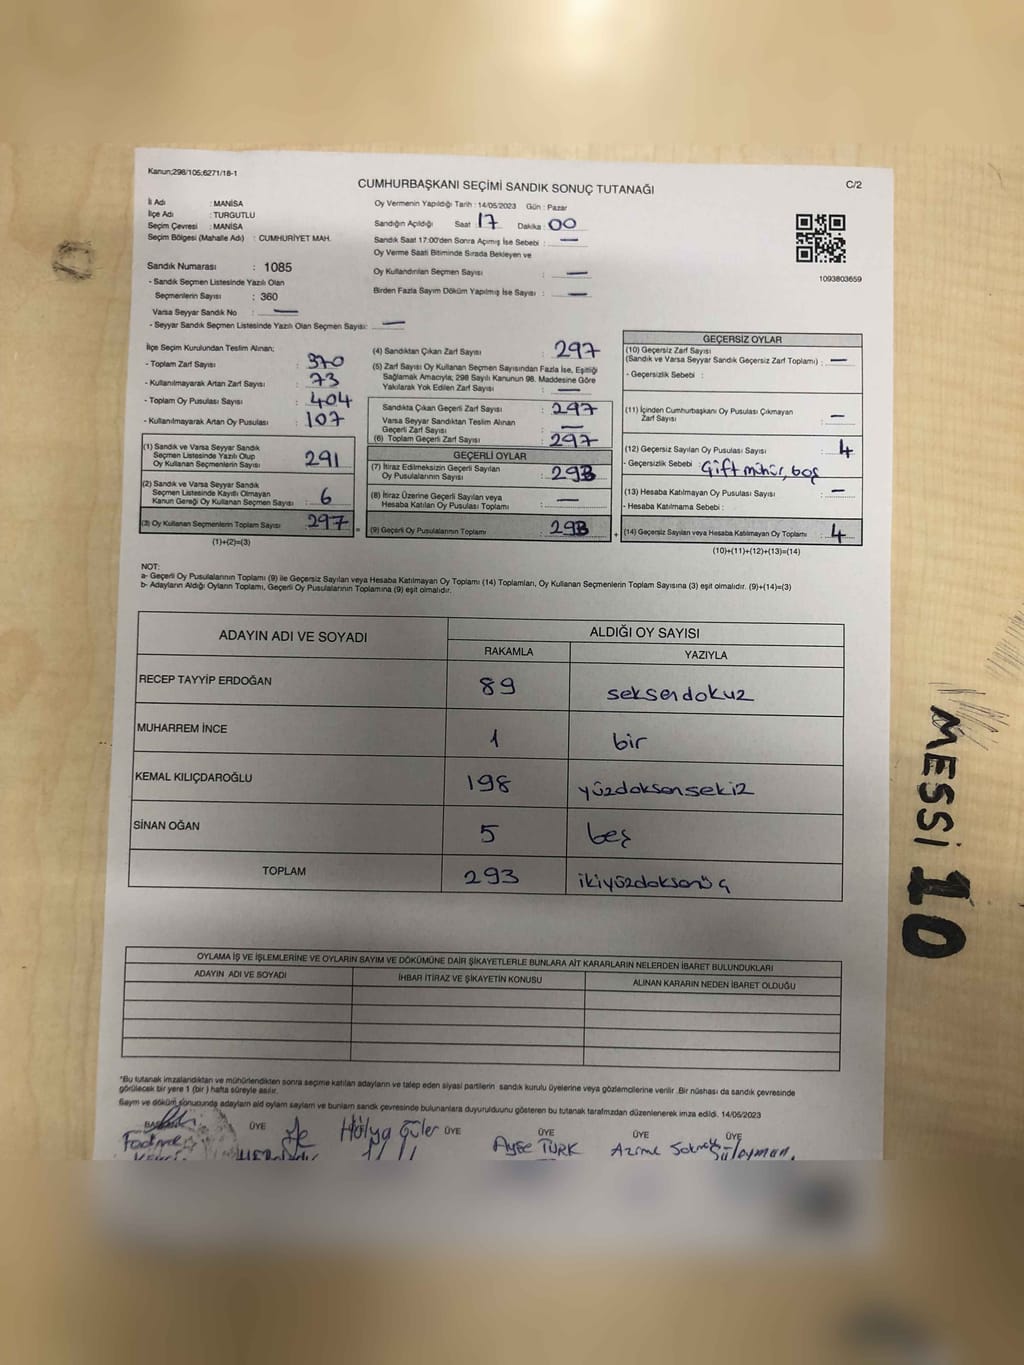 Kanun;298/105;6271/18-1
CUMHURBAŞKANI SEÇİMİ SANDIK SONUÇ TUTANAĞI
C/2
İl Adı : MANİSA
İlçe Adı : TURGUTLU
Seçim Çevresi : MANİSA
Seçim Bölgesi (Mahalle Adı) : CUMHURİYET MAH.
Sandık Numarası : 1085
- Sandık Seçmen Listesinde Yazılı Olan
Seçmenlerin Sayısı : 360
Varsa Seyyar Sandık No : —
- Seyyar Sandık Seçmen Listesinde Yazılı Olan Seçmen Sayısı: —
Oy Vermenin Yapıldığı Tarih : 14/05/2023 Gün : Pazar
Sandığın Açıldığı Saat : 17 Dakika : 00
Sandık Saat 17:00'den Sonra Açımış İse Sebebi : —
Oy Verme Saati Bitiminde Sırada Bekleyen ve
Oy Kullandırılan Seçmen Sayısı : —
Birden Fazla Sayım Döküm Yapılmış İse Sayısı : —
1093803659
İlçe Seçim Kurulundan Teslim Alınan;
- Toplam Zarf Sayısı : 370
- Kullanılmayarak Artan Zarf Sayısı : 73
- Toplam Oy Pusulası Sayısı : 404
- Kullanılmayarak Artan Oy Pusulası : 107
(1) Sandık ve Varsa Seyyar Sandık
Seçmen Listesinde Yazılı Olup
Oy Kullanan Seçmenlerin Sayısı : 291
(2) Sandık ve Varsa Seyyar Sandık
Seçmen Listesinde Kayıtlı Olmayan
Kanun Gereği Oy Kullanan Seçmen Sayısı : 6
(3) Oy Kullanan Seçmenlerin Toplam Sayısı : 297
(1)+(2)=(3)
(4) Sandıktan Çıkan Zarf Sayısı : 297
(5) Zarf Sayısı Oy Kullanan Seçmen Sayısından Fazla İse, Eşitliği
Sağlamak Amacıyla; 298 Sayılı Kanunun 98. Maddesine Göre
Yakılarak Yok Edilen Zarf Sayısı : —
Sandıkta Çıkan Geçerli Zarf Sayısı : 297
Varsa Seyyar Sandıktan Teslim Alınan
Geçerli Zarf Sayısı : —
(6) Toplam Geçerli Zarf Sayısı : 297
GEÇERLİ OYLAR
(7) İtiraz Edilmeksizin Geçerli Sayılan
Oy Pusulası Sayısı : 293
(8) İtiraz Üzerine Geçerli Sayılan veya
Hesaba Katılan Oy Pusulası Toplamı : —
(9) Geçerli Oy Pusulalarının Toplamı : 293
GEÇERSİZ OYLAR
(10) Geçersiz Zarf Sayısı
(Sandık ve Varsa Seyyar Sandık Geçersiz Zarf Toplamı) : —
- Geçersizlik Sebebi :
(11) İçinden Cumhurbaşkanı Oy Pusulası Çıkmayan
Zarf Sayısı : —
(12) Geçersiz Sayılan Oy Pusulası Sayısı : 4
- Geçersizlik Sebebi : Çift mühür, boş
(13) Hesaba Katılmayan Oy Pusulası Sayısı : —
- Hesaba Katılmama Sebebi :
(14) Geçersiz Sayılan veya Hesaba Katılmayan Oy Toplamı : 4
(10)+(11)+(12)+(13)=(14)
NOT:
a- Geçerli Oy Pusulalarının Toplamı (9) ile Geçersiz Sayılan veya Hesaba Katılmayan Oy Toplamı (14) Toplamları, Oy Kullanan Seçmenlerin Toplam Sayısına (3) eşit olmalıdır. (9)+(14)=(3)
b- Adayların Aldığı Oyların Toplamı, Geçerli Oy Pusulalarının Toplamına (9) eşit olmalıdır.
ADAYIN ADI VE SOYADI
ALDIĞI OY SAYISI
RAKAMLA YAZIYLA
RECEP TAYYİP ERDOĞAN 89 seksendokuz
MUHARREM İNCE 1 bir
KEMAL KILIÇDAROĞLU 198 yüzdoksansekiz
SİNAN OĞAN 5 beş
TOPLAM 293 ikiyüzdoksanüç
OYLAMA İŞ VE İŞLEMLERİNE VE OYLARIN SAYIM VE DÖKÜMÜNE DAİR ŞİKAYETLERLE BUNLARA AİT KARARLARIN NELERDEN İBARET BULUNDUKLARI
ADAYIN ADI VE SOYADI İHBAR İTİRAZ VE ŞİKAYETİN KONUSU ALINAN KARARIN NEDEN İBARET OLDUĞU
*Bu tutanak imzalandıktan ve mühürlendikten sonra seçime katılan adayların ve talep eden siyasi partilerin sandık kurulu üyelerine veya gözlemcilerine verilir .Bir nüshası da sandık çevresinde
görülecek bir yere 1 (bir ) hafta süreyle asılır.
Sayım ve döküm sonucunda adayların ald oyların sayıları ve bunların sandk çevresinde bulunanlara duyurulduunu gösteren bu tutanak tarafmzdan düzenlenerek imza edildi. 14/05/2023
ÜYE ÜYE ÜYE ÜYE ÜYE
Fadime Hülya Güler Ayşe TÜRK Azime Süleyman
MESSİ 10